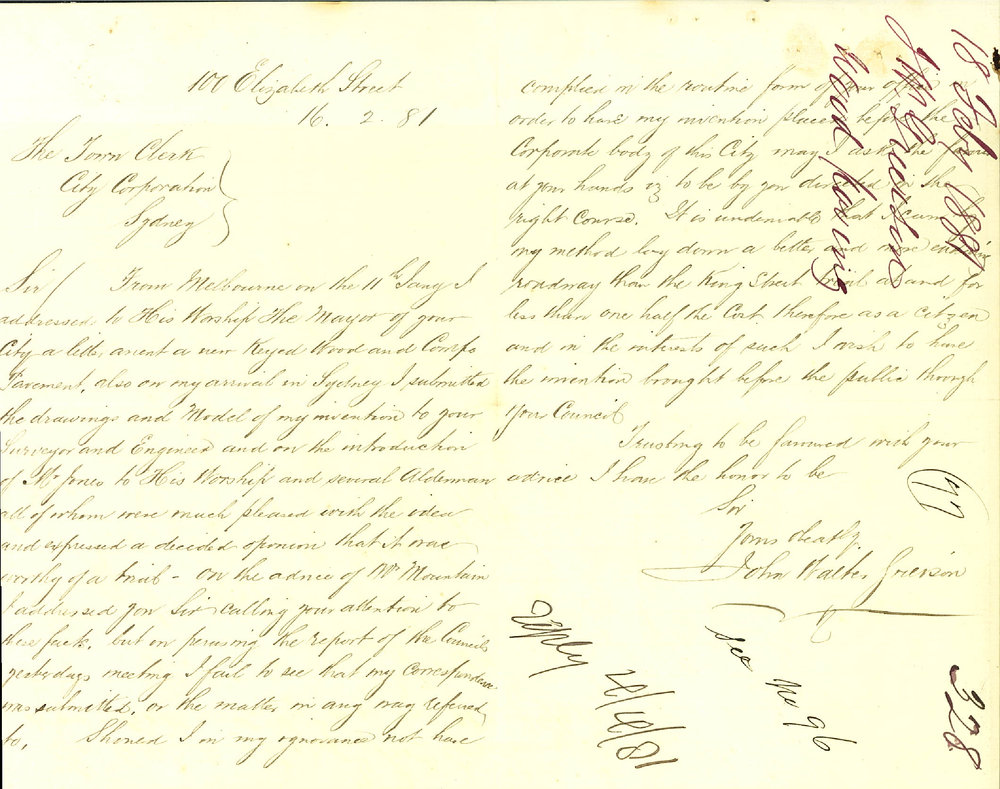 100 Elizabeth Street
16. 2. 81
The Town Clerk
City Corporation
Sydney
Sir/ From Melbourne on the 11th Jany I
addressed to His Worship The Mayor of your
City a letter anent a new Keyed Wood and Compo
Pavement, also on my arrival in Sydney I submitted
the drawings and Model of my invention to your
Surveyor and Engineer and on the introduction
of Mr Jones to His Worship and several Alderman
all of whom were much pleased with the idea
and expressed a decided opinion that it was
worthy of a trial - on the advice of Mr Mountain
I addressed you Sir calling your attention to
these facts, but on perusing the report of the Councils
yesterdays meeting I fail to see that my correspondence
was submitted, or the matter in any way referred
to. Should I in my ignorance not have
complied in the routine form of your office in
order to have my invention placed before the
Corporate body of this City may I ask the favor
at your hands viz to be by you directed in the
right Course. It is undeniable that I can
my method lay down a better and more
roadway than the King Street trial and for
less than one half the Cost therefore as a citizen
and in the interests of such I wish to have
the invention brought before the public through
your Council
Trusting to be favured with your
advice I have the honor to be
Sir
Yours obedtly.
John Walter Grierson
18 Feby 1881
J W Grierson
Wood Paving
97
328
see No 96
reply